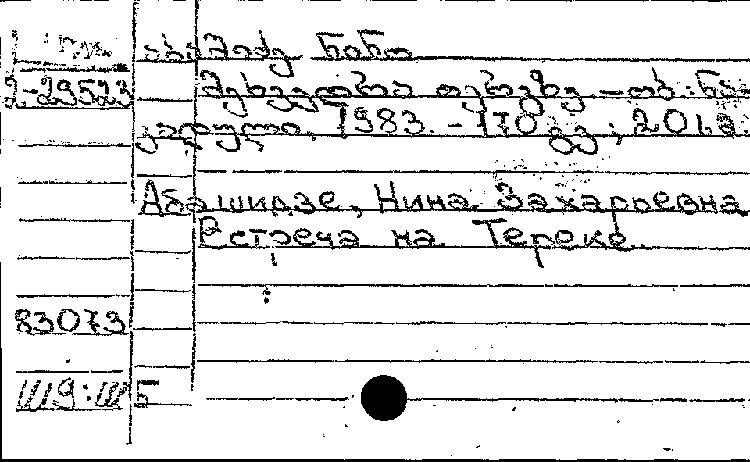 აბაშიძე ნინო
2-29523
შეხვედრა თერგზე -თბ.: ნა-
კადული, 1983. -170 გვ; 20სმ.
Абашидзе, Нина Захарьевна
Встреча на Тереке.
83073